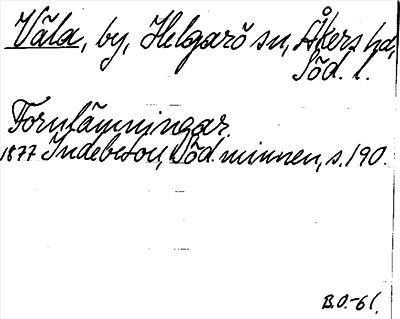 Våla, by, Helgarö sn, Åkers hd,
Söd. l.
Fornlämningar.
1877 Indebetou, Söd. minnen, s. 190.
B.O.-61.